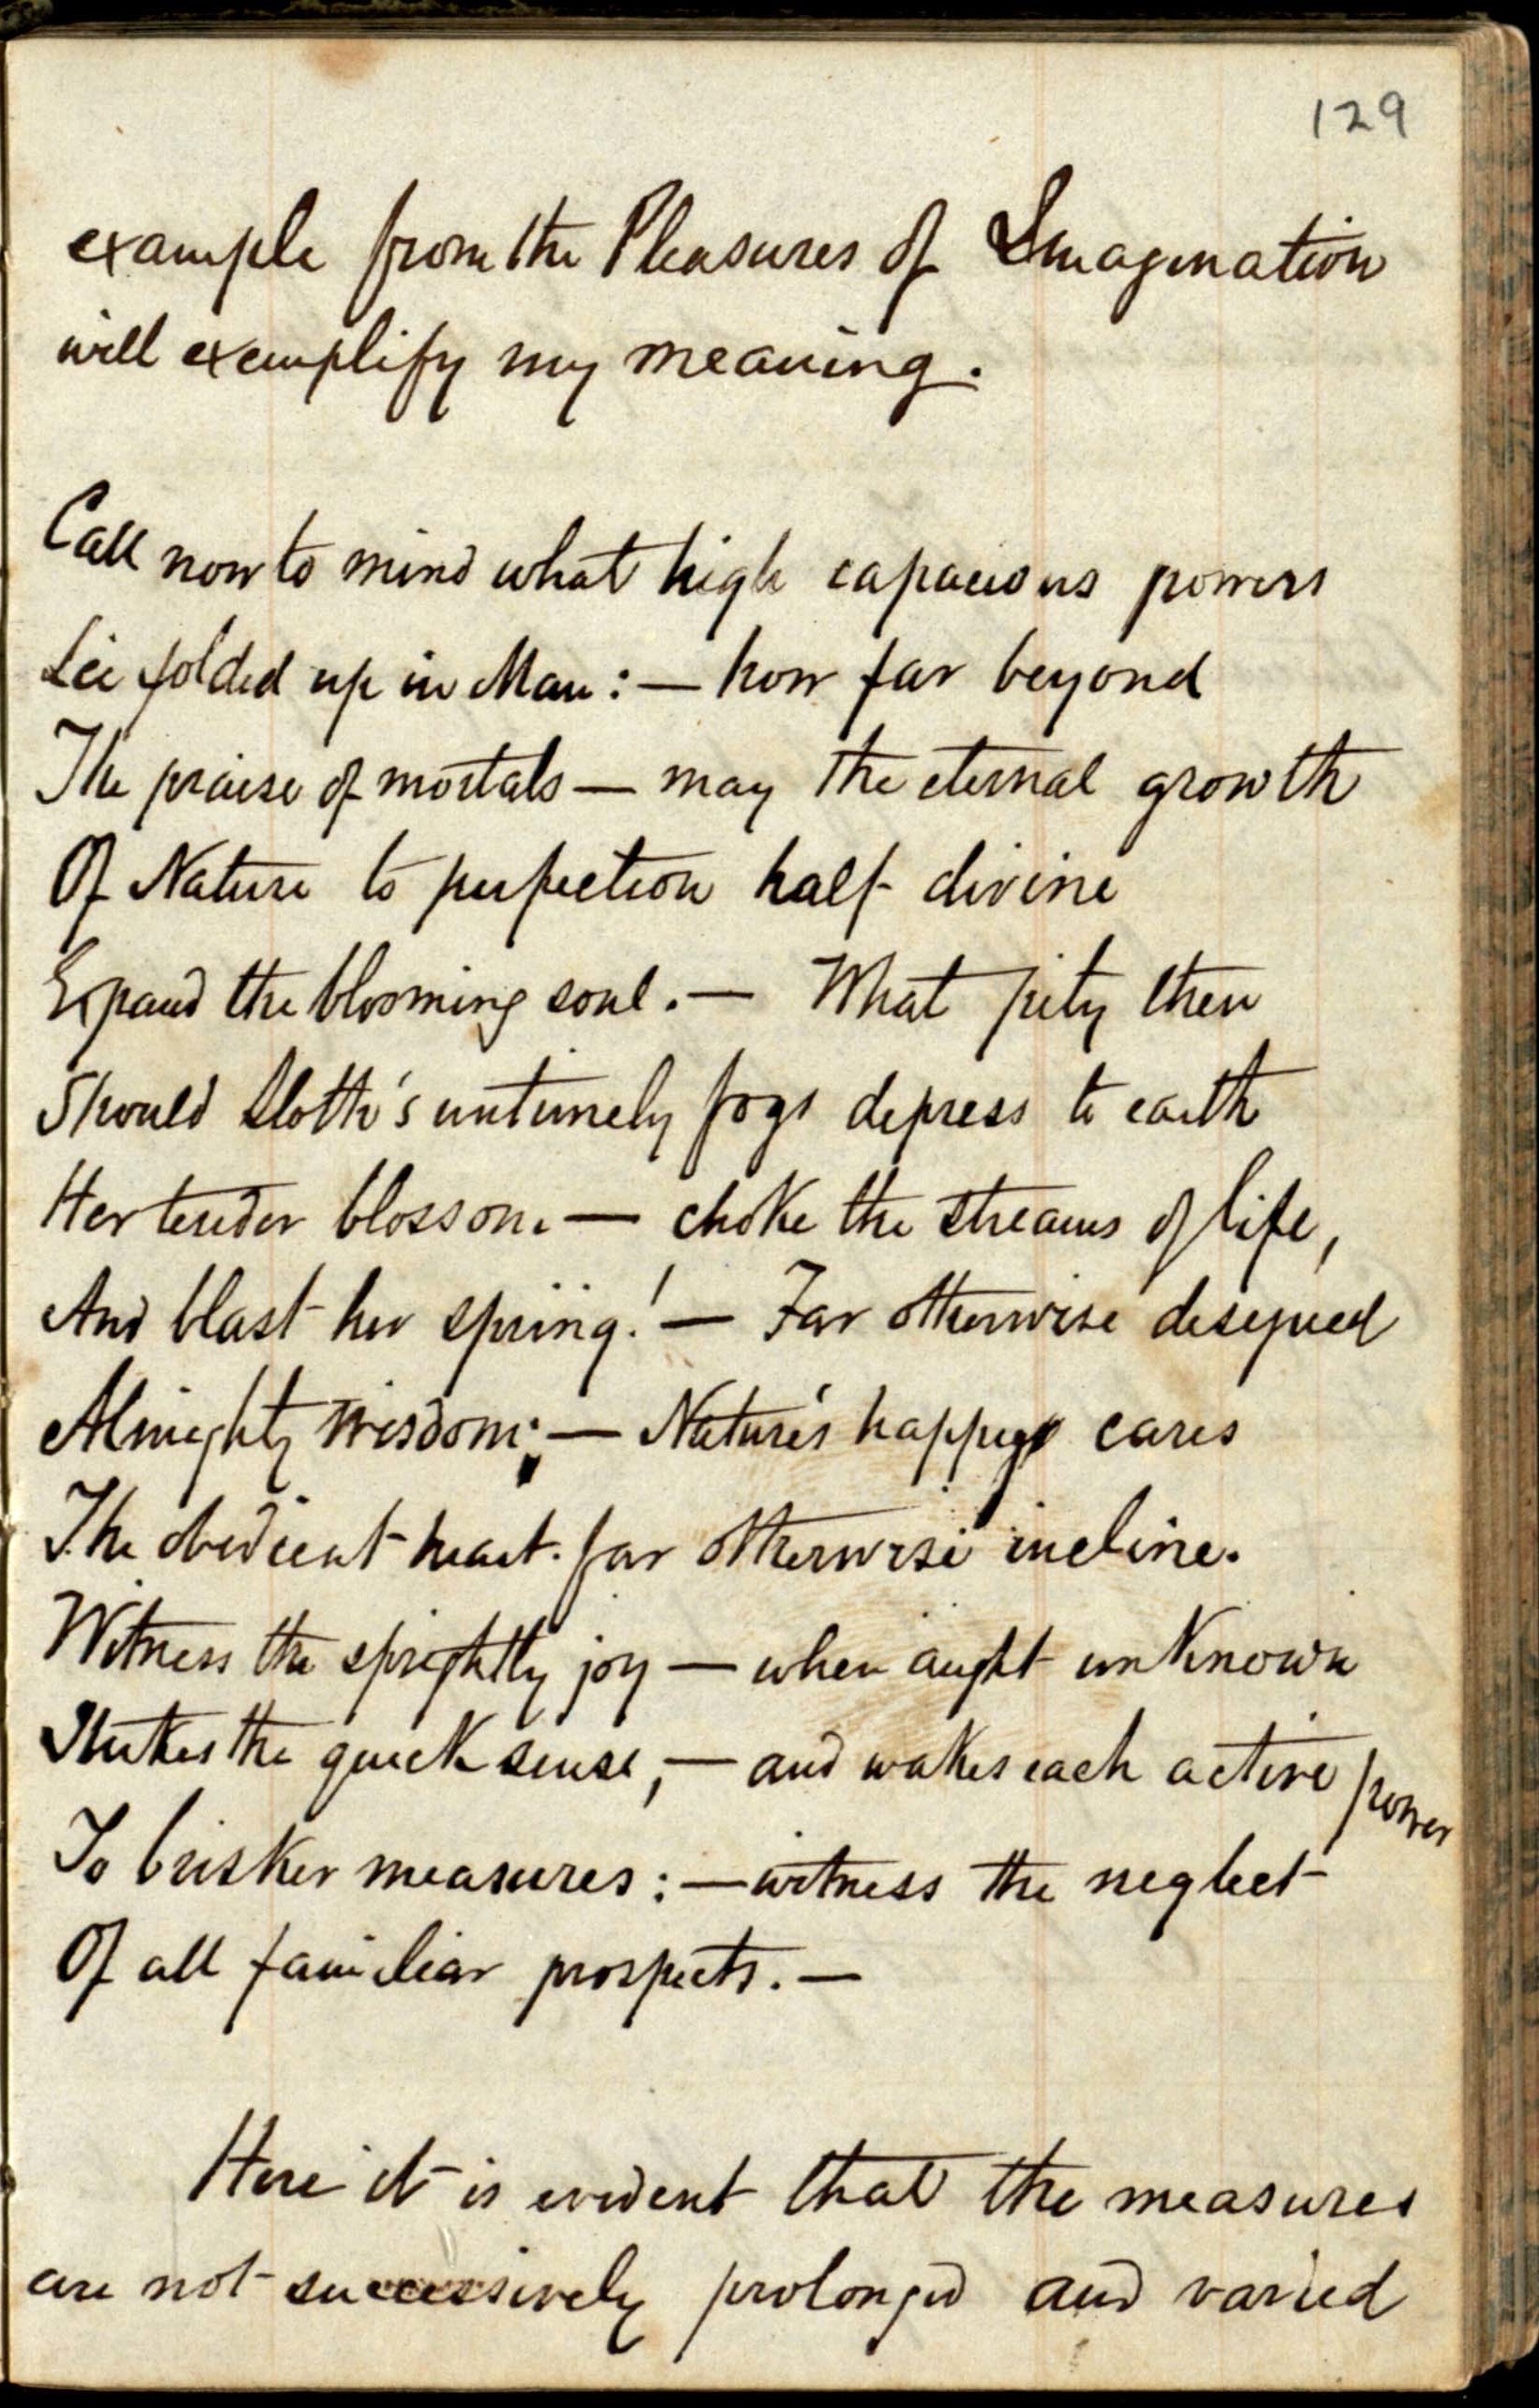 129
example from the Pleasures of Imagination
will exemplify my meaning.
Call now to mind what high capacious powers
Lie folded up in Man : — how far beyond
The praise of mortals — may the eternal growth
Of Nature to perfection half divine
Expand the blooming soul. — What pity then
Should Sloth's untimely fogs depress to earth
Her tender blossom — choke the streams of life,
And blast her spring! — Far otherwise designed
Almighty Wisdom; — Nature's happy cares
The obedient heart far otherwise incline.
Witness the sprightly joy — when aught unknown
Strikes the quick sense, — and wakes each active power
To brisker measures : — witness the neglect
Of all familiar prospects. —
Here it is evident that the measures
are not successively prolonged and varied